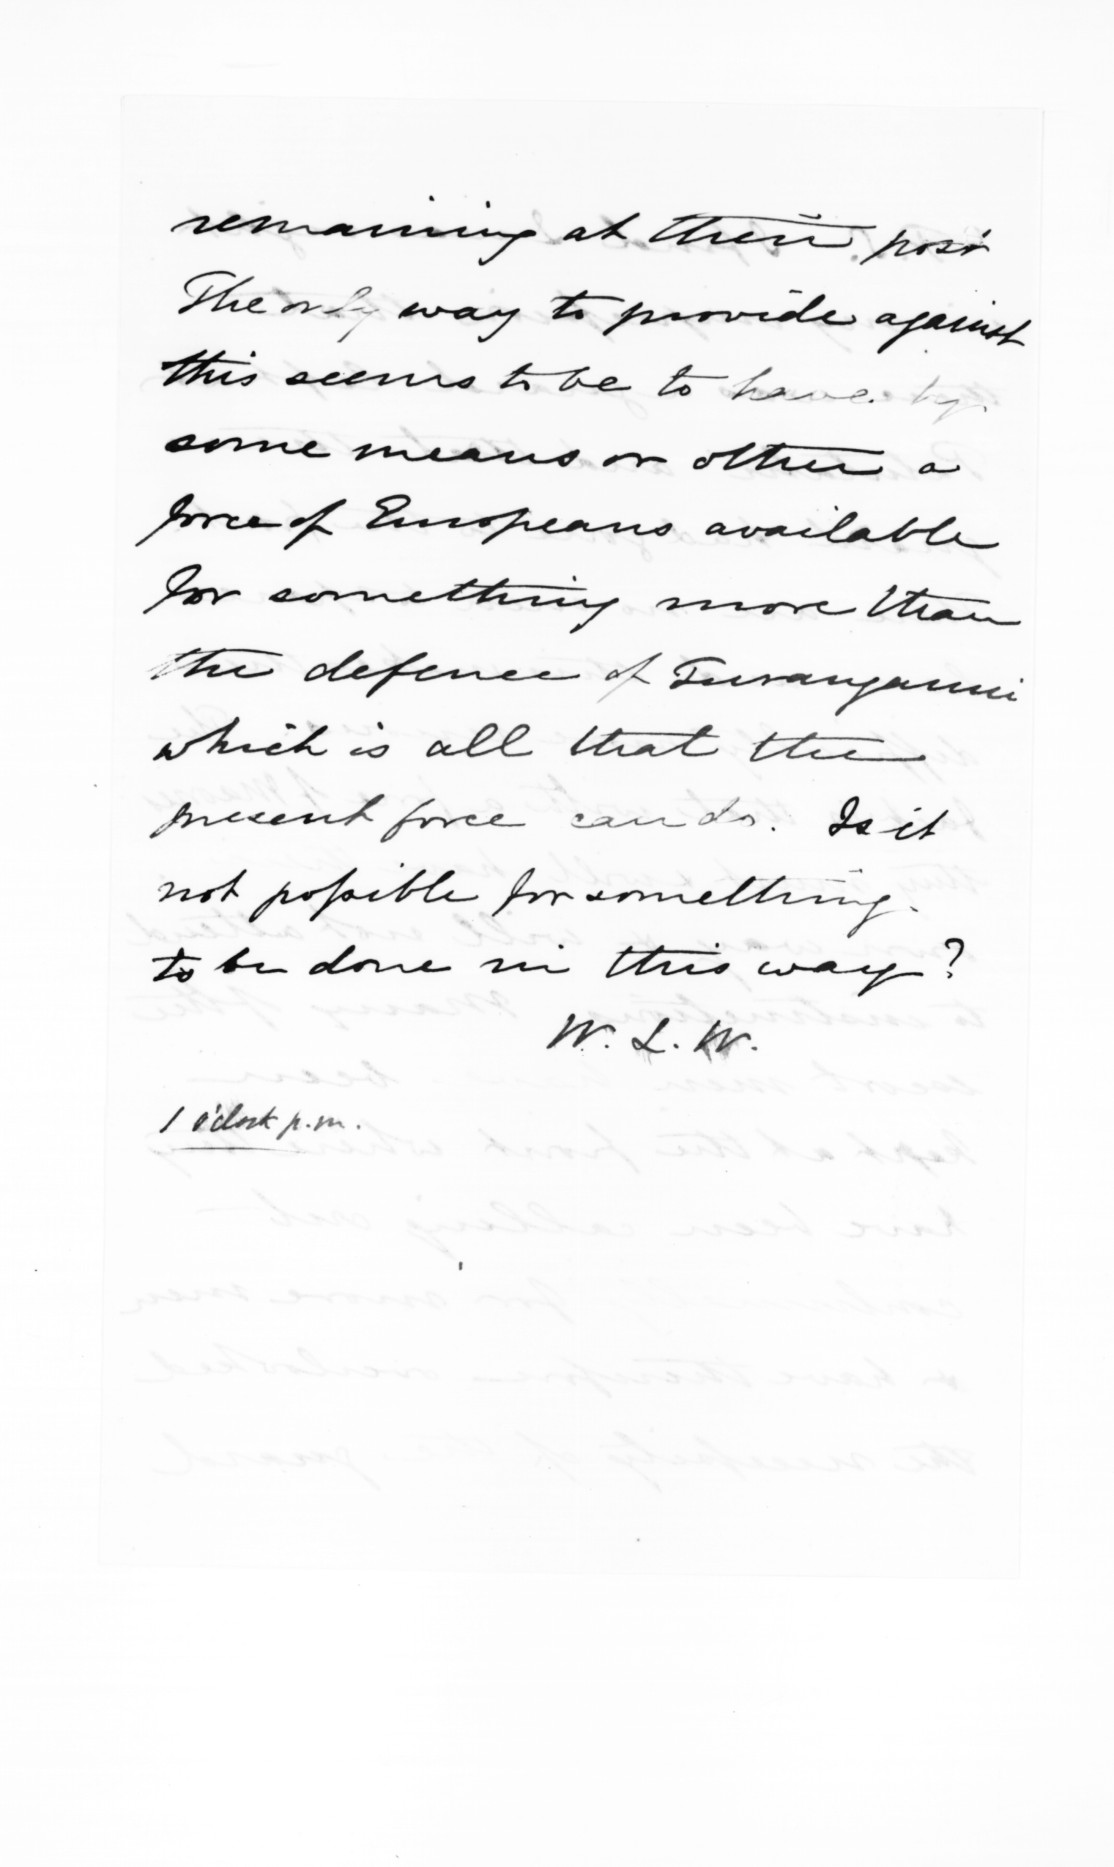 remaining at their post
The only way to provide against
this seems to be to have by
some means or other a
force of Europeans available
for something more than
the defence of Turanganui
which is all that the
present force can do. Is it
not possible for something
to be done in this way?
W. L. W.
1 o'clock p.m.